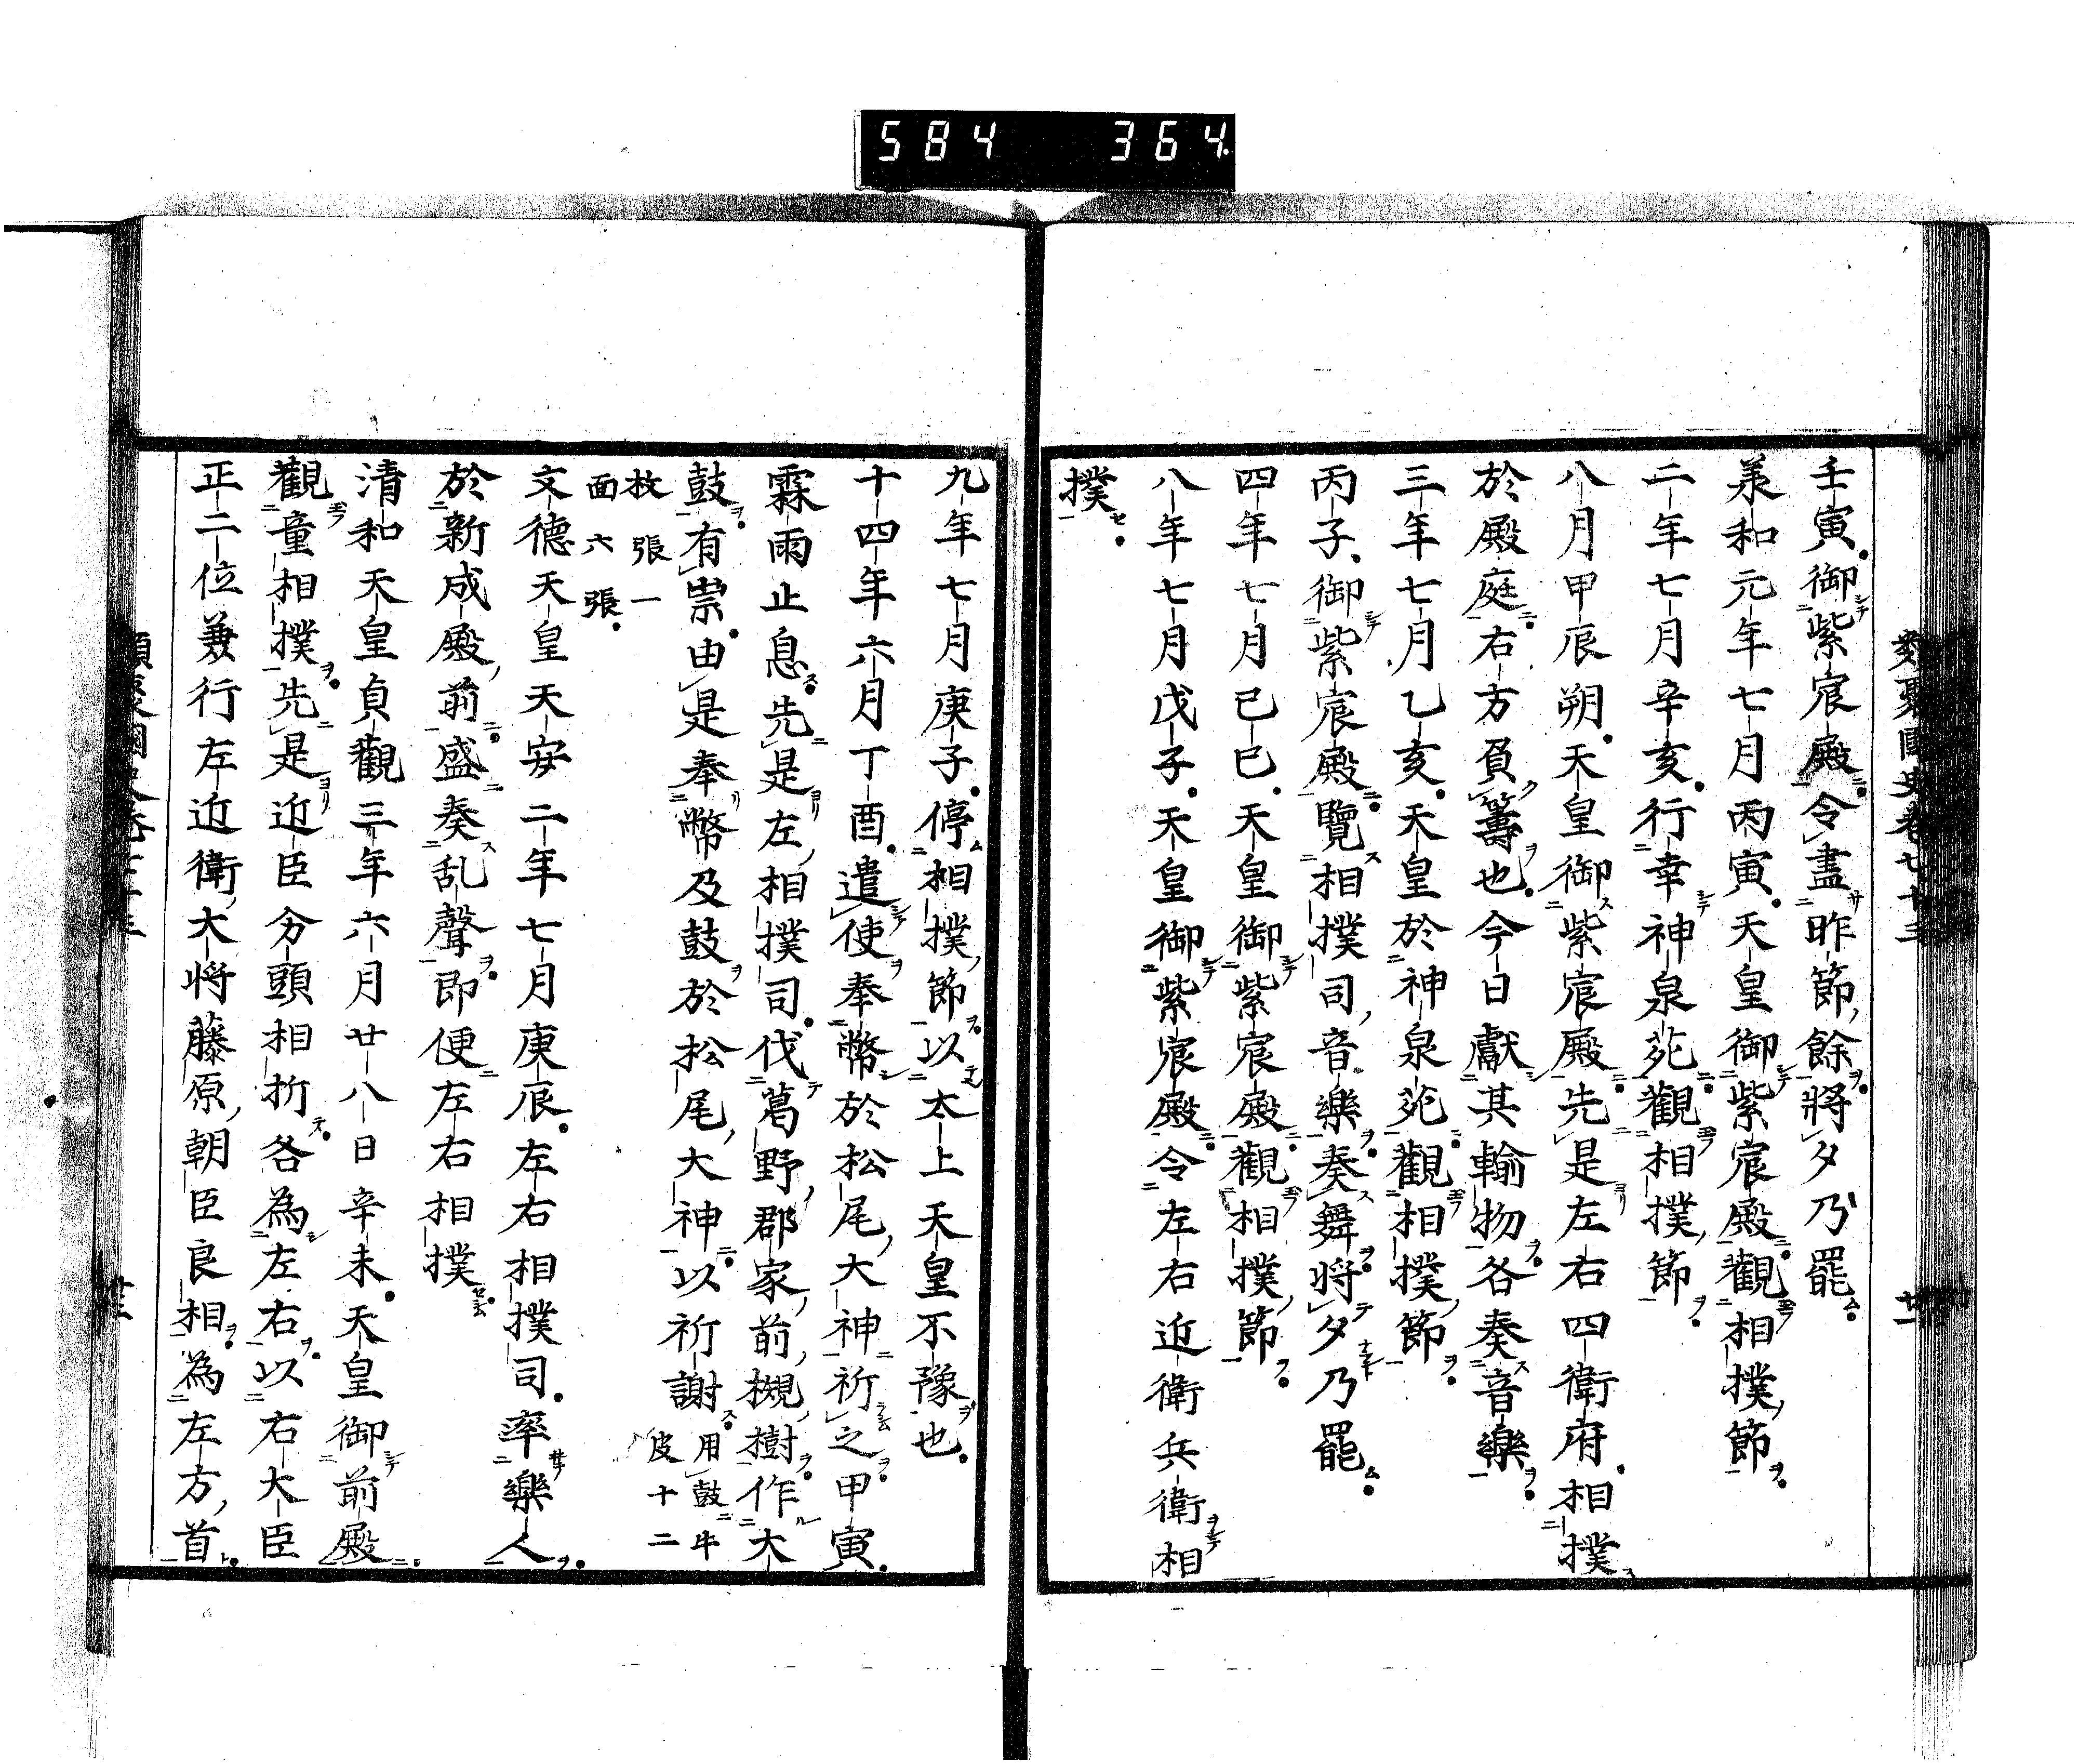 584 364
類聚國史卷七十三 廿一
壬寅御紫宸殿令盡昨節餘將夕乃罷
羕和元年七月丙寅天皇御紫宸殿觀相撲節
二年七月辛亥行幸神泉苑觀相撲節
八月甲辰朔天皇御紫宸殿先是左右四衛府相撲
於殿庭右方負籌也今日獻其輸物各奏音樂
三年七月乙亥天皇於神泉苑觀相撲節
丙子御紫宸殿覽相撲司音樂奏舞將夕乃罷
四年七月己巳天皇御紫宸殿觀相撲節
八年七月戊子天皇御紫宸殿令左右近衛兵衛相
撲
九年七月庚子停相撲節以太上天皇不豫也
十四年六月丁酉遣使奉幣於松尾大神祈之甲寅
霖雨止息先是左相撲司伐葛野郡家前槻樹作大
鼓有祟由是奉幣及鼓於松尾大神以祈謝 用鼓牛
皮十二
枚張一
面六張
文德天皇天安二年七月庚辰左右相撲司率樂人
於新成殿前盛奏乱聲即便左右相撲
清和天皇貞觀三年六月廿八日辛未天皇御前殿
觀童相撲先是近臣分頭相折各為左右以右大臣
正二位兼行左近衛大将藤原朝臣良相為左方首